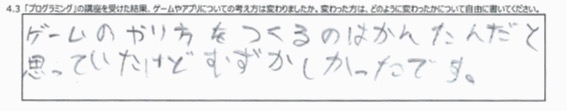 4.3 「プログラミング」の講座を受けた結果、ゲームやアプリについての考え方は変わりましたか。変わった方は、どのように変わったかについて自由に書いてください。
ゲームのやり方をつくるのはかんたんだと
思っていたけどむずかしかったです。